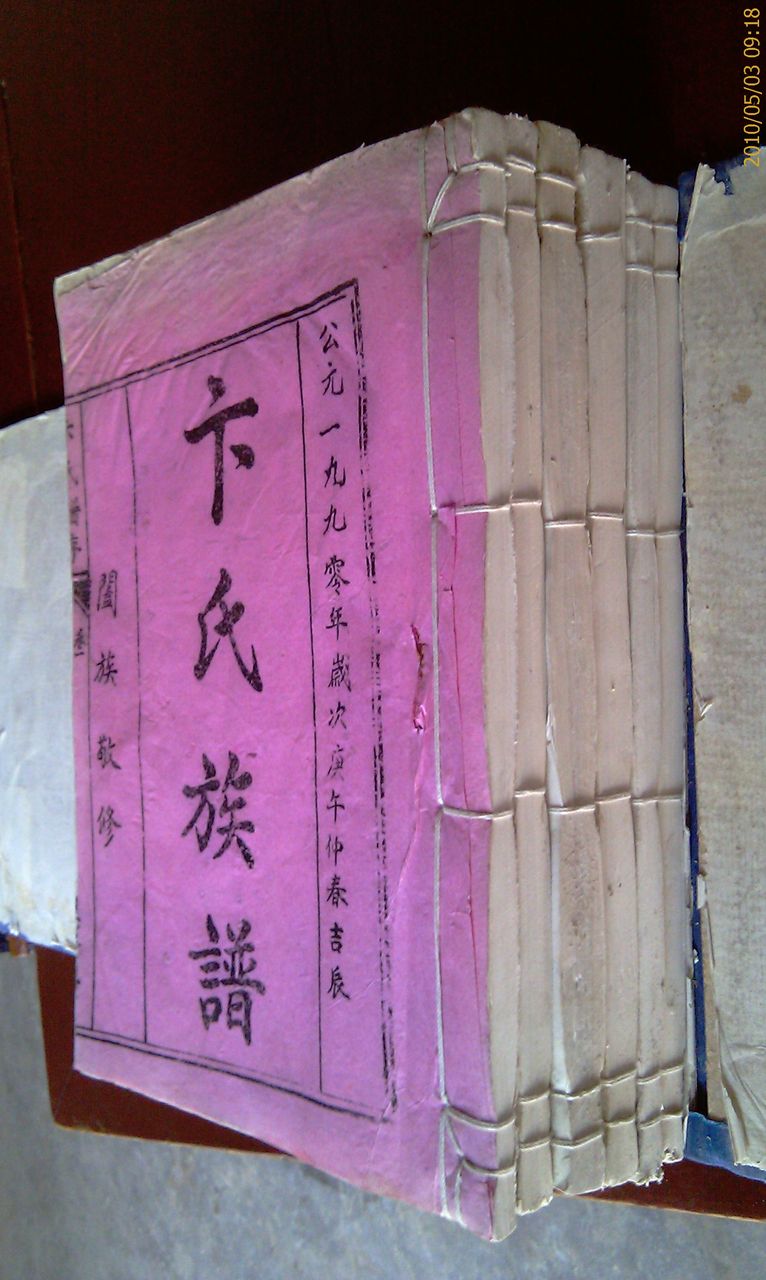 公元一九九零年歲次庚午仲春吉辰
卞氏族譜
闔族敬修
2010/05/03 09:18